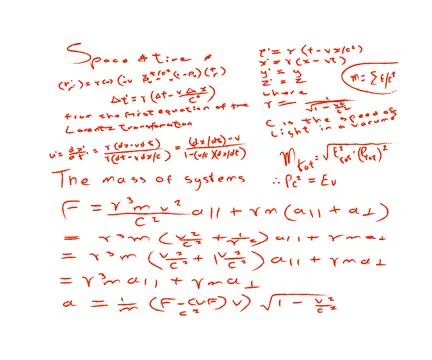 Space & time
Δt' = γ (Δt - vΔx/c²)
from the first equation of the
Lorentz transformation
u' = dx'/dt' = γ(dx-vdt)/γ(dt-vdx/c²) = (dx/dt)-v/1-(v/c)(dx/dt)
The mass of systems
t' = γ (t - vx/c²)
x' = γ (x - vt)
y' = y
z' = z
where
γ = 1/√(1 - v²/c²)
c is the speed of
light in a vacuum
m = Σ E/c²
M tot = √E²tot - (Ptot)²
∴ Pc² = Ev
F = γ³mv²/c² a∥ + γm (a∥ + a⊥)
= γ³m (v²/c² + 1/γ²) a∥ + γma⊥
= γ³m (v²/c² + 1 v²/c²) a∥ + γma⊥
= γ³ma∥ + γma⊥
a = 1/m (F - (vF)v/c²) √1 - v²/c²